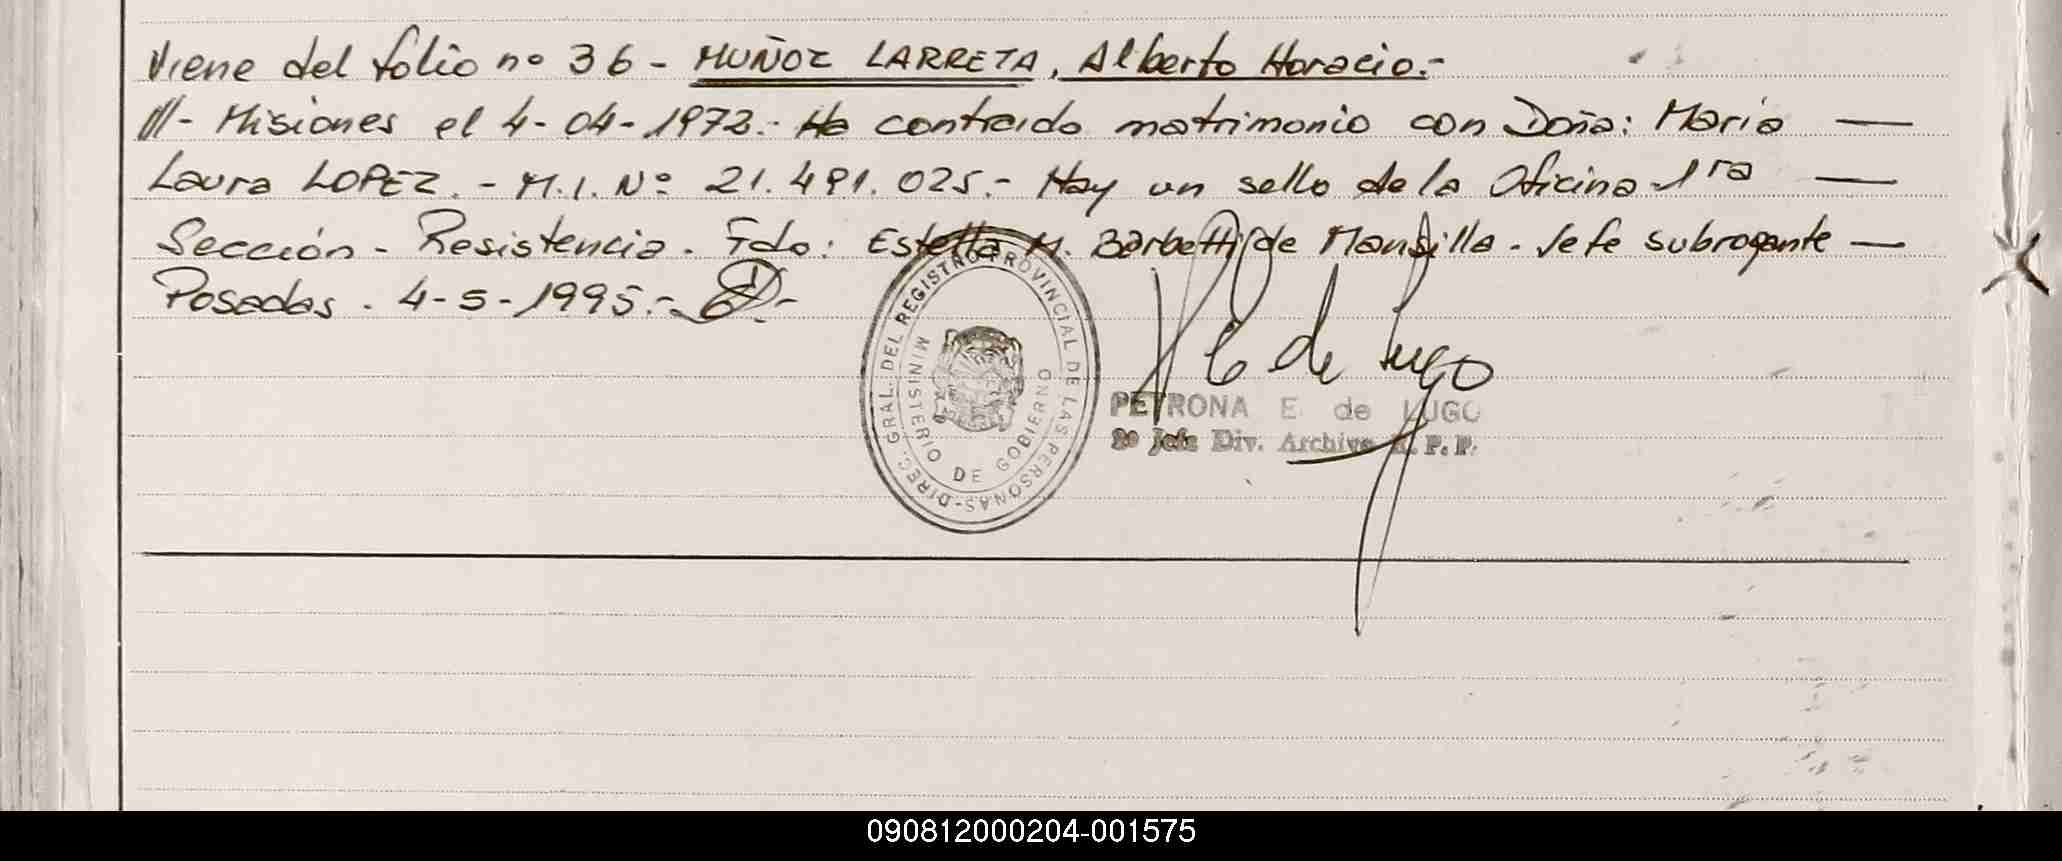 Viene del folio nº 36 - MUÑOZ LARRETA, Alberto Horacio.-
///- Misiones el 4-04-1972.- Ha contraido matrimonio con Doña: Maria —
Laura LOPEZ. - M.I. Nº 21.491.025.- Hay un sello de la Oficina 1ra —
Sección - Resistencia. Fdo: Estella M. Barbetti de Mansilla - Jefe subrogante —
Posadas. 4-5-1995.-
DIREC. GRAL. DEL REGISTRO PROVINCIAL DE LAS PERSONAS-
MINISTERIO DE GOBIERNO
de Lugo
PETRONA E. de LUGO
2º Jefe Div. Archivo R. P. P.
090812000204-001575